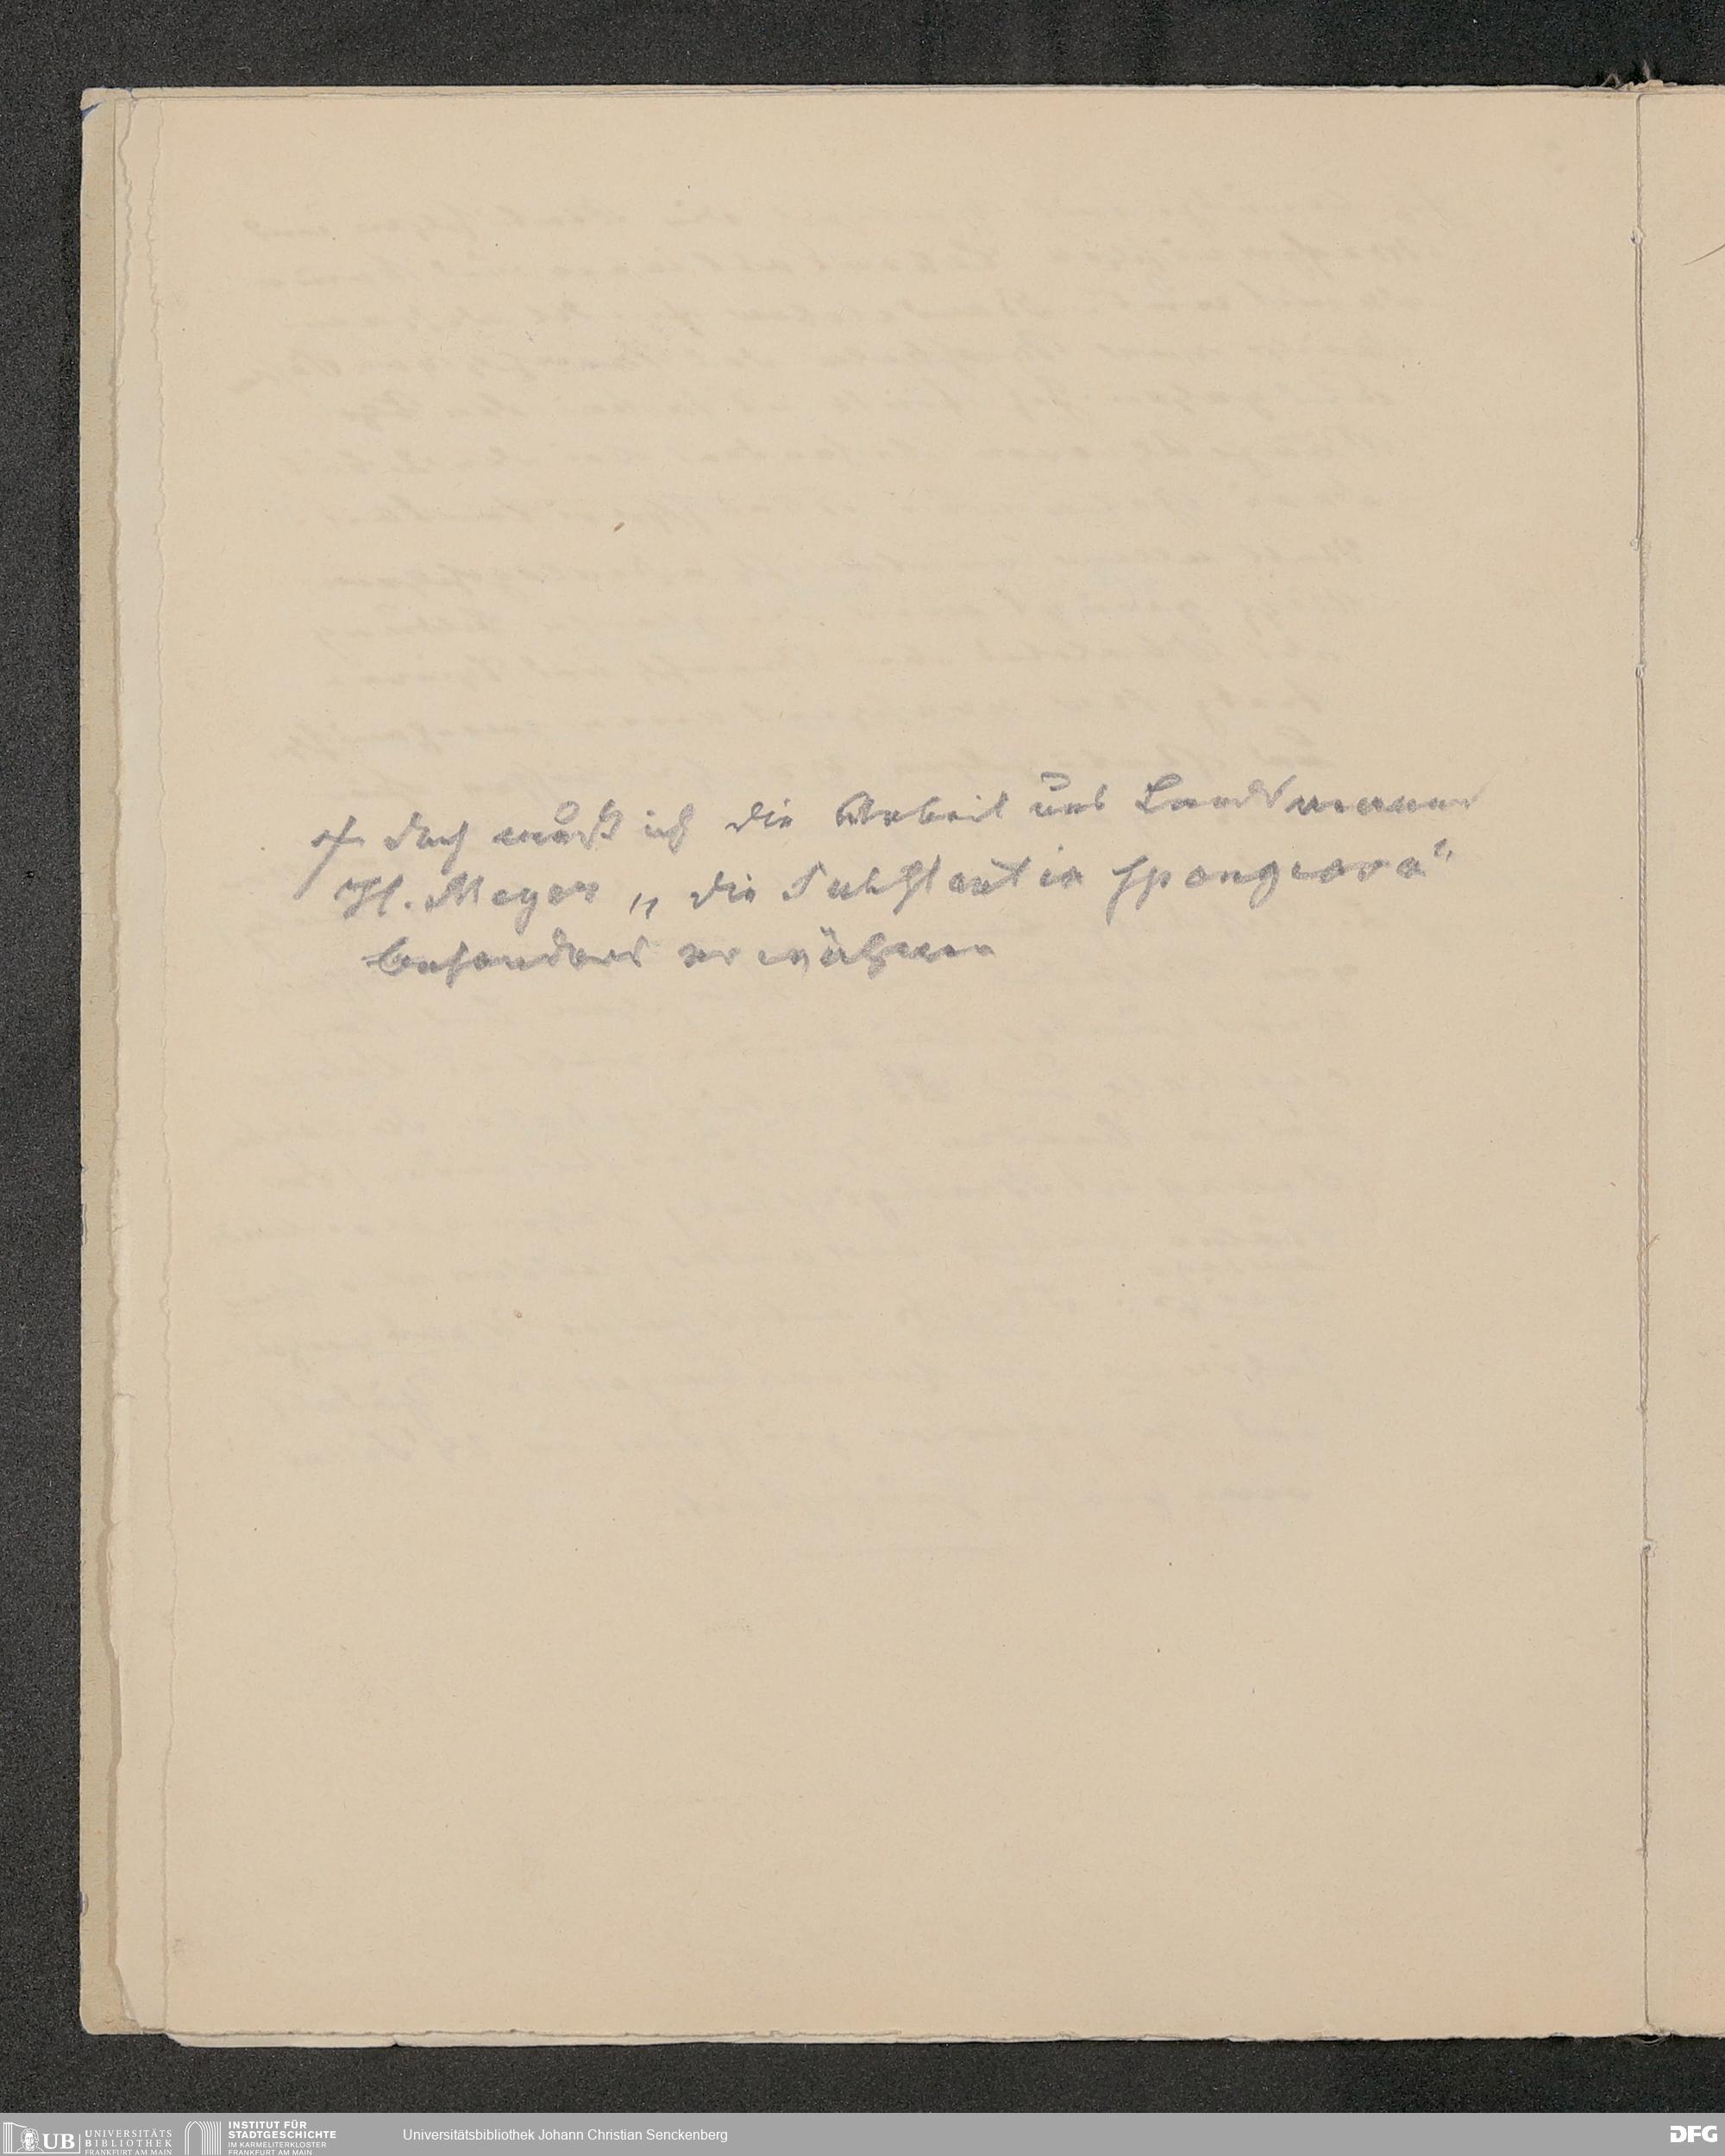 + doch muß ich die Arbeit uns Landsmann
H. Meyer „die Substantia spongiosa“
besonders erwähnen
UB
UNIVERSITÄTS
BIBLIOTHEK
FRANKFURT AM MAIN
INSTITUT FÜR
STADTGESCHICHTE
IM KARMELITERKLOSTER
FRANKFURT AM MAIN
Universitätsbibliothek Johann Christian Senckenberg
DFG